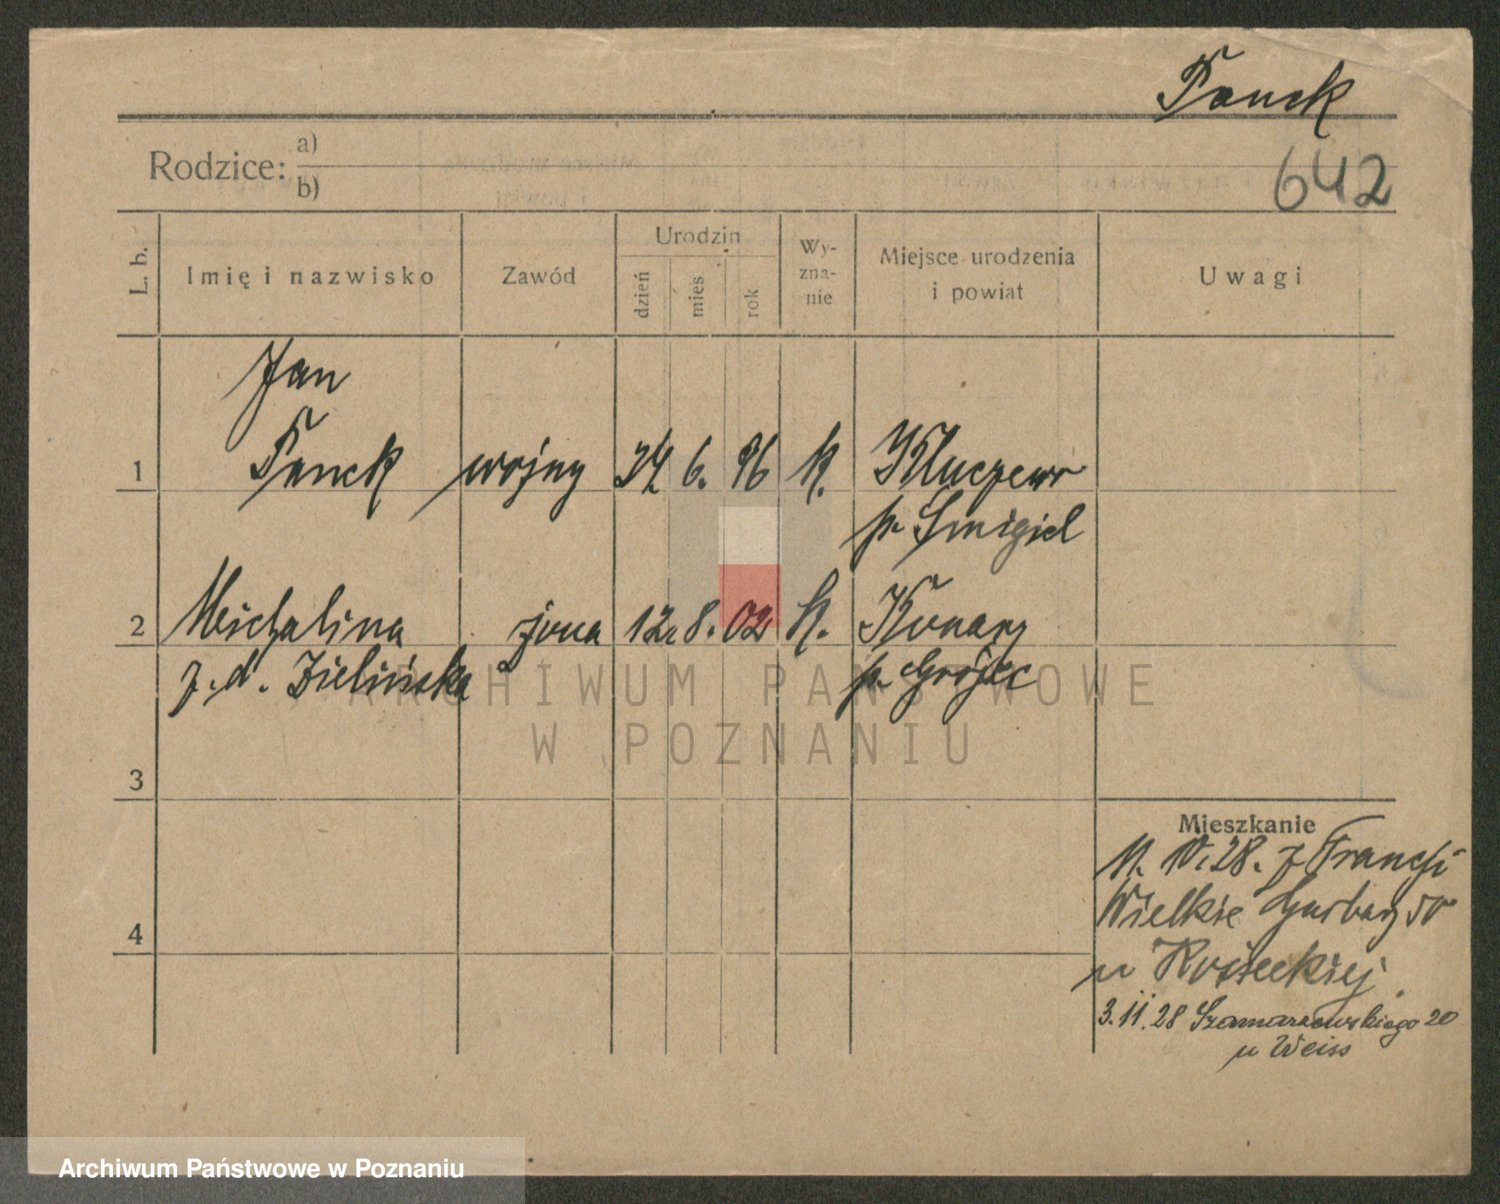 Fanck
Rodzice: a)
b)
642
L. b.
Imię i nazwisko
Zawód
Urodzin
dzień
mies
rok
Wy-
zna-
nie
Miejsce urodzenia
i powiat
Uwagi
Jan
1 Fanck wojny 6. 96 k.
p. Śmigiel
2 Michalina żona 12. 8. 02 k. Konary
z. d. Zielińska p. Grójec
3
4
Mieszkanie
28. z Francji
Wielkie Garbary 50
u
3.11.28 Szamarzewskiego 20
u Weiss
ARCHIWUM PAŃSTWOWE
W POZNANIU
Archiwum Państwowe w Poznaniu